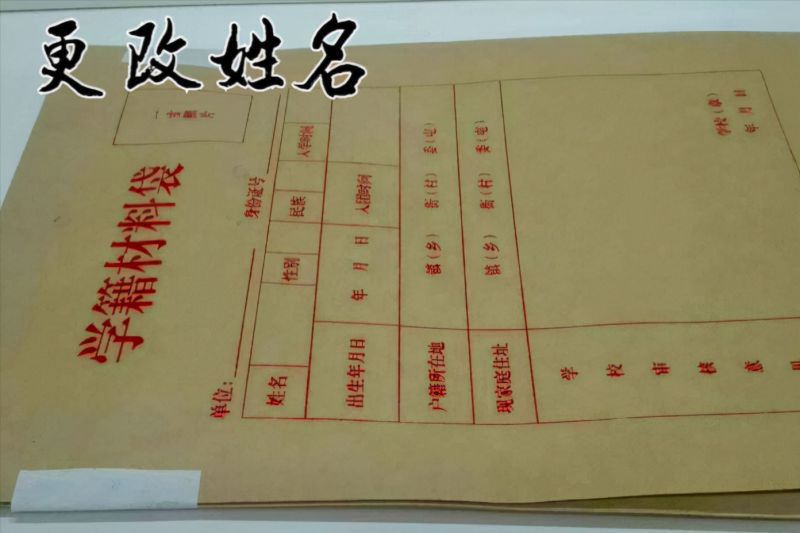 更改姓名
一寸照片
学籍材料袋
单位： 身份证号
姓名 性别 民族 入学时间
出生年月日 年 月 日 入团时间
户籍所在地 镇（乡） 街（村） 委（屯）
现家庭住址 镇（乡） 街（村） 委（屯）
学校审核意见
学校（章）
年 月 日